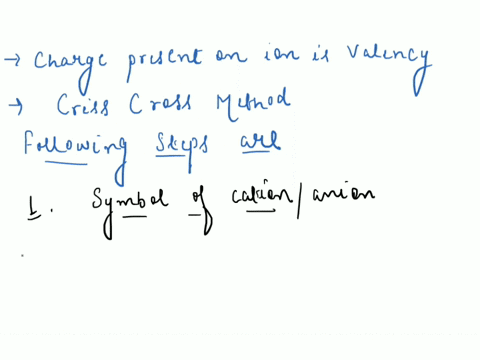 → Charge present on ion is Valency
→ Criss Cross Method
Following Steps are
1. Symbol of cation/anion